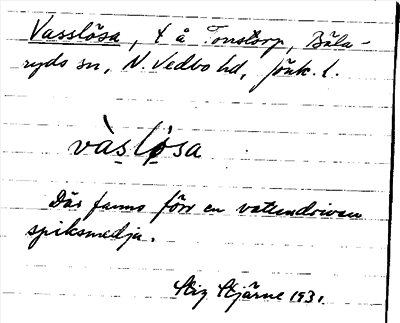 Vasslösa, t å Tonstorp, Bäla-
ryds sn, N. Vedbo hd, Jönk. l.
vàslösa
Där fanns förr en vattendriven
spiksmedja.
Stig Stjärne 1931.